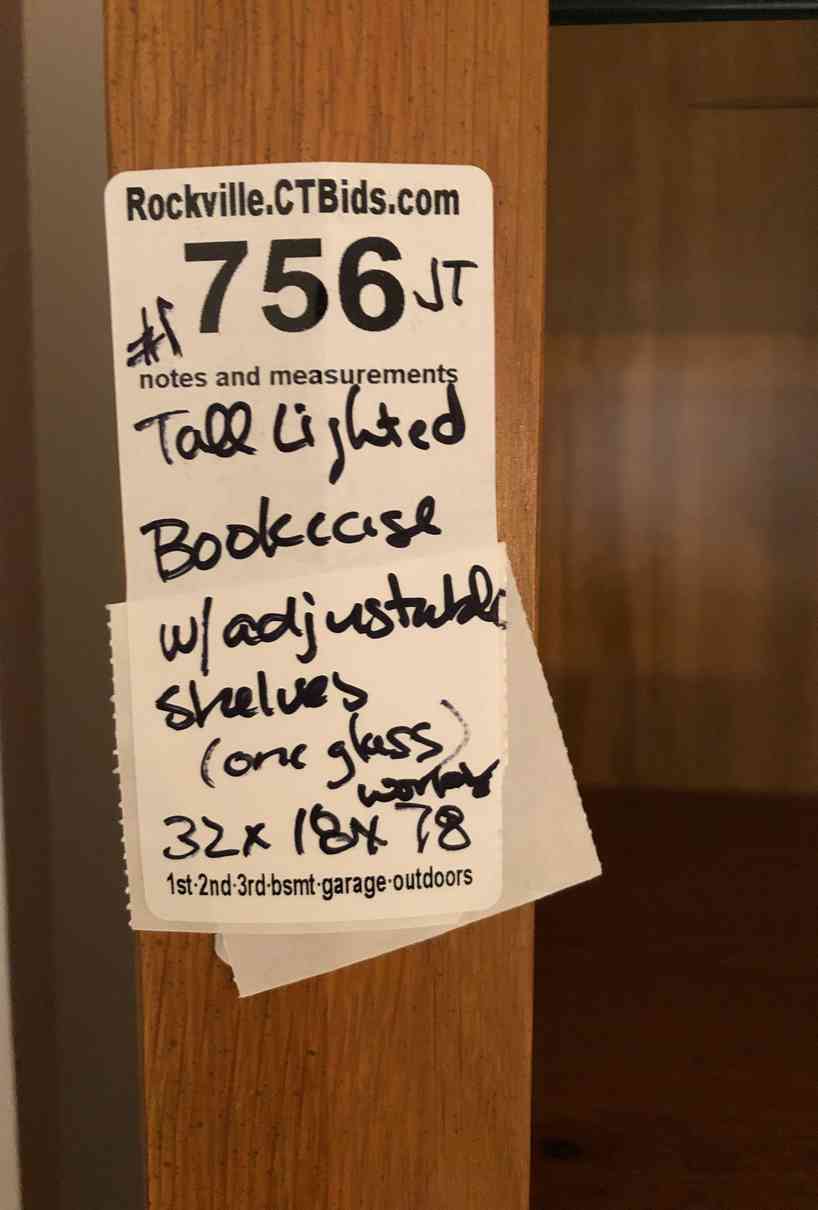 Rockville.CTBids.com
#1 756 JT
notes and measurements
Tall Lighted
Bookcase
w/adjustable
shelves
(one glass)
works
32x 18x 78
1st·2nd·3rd·bsmt·garage·outdoors